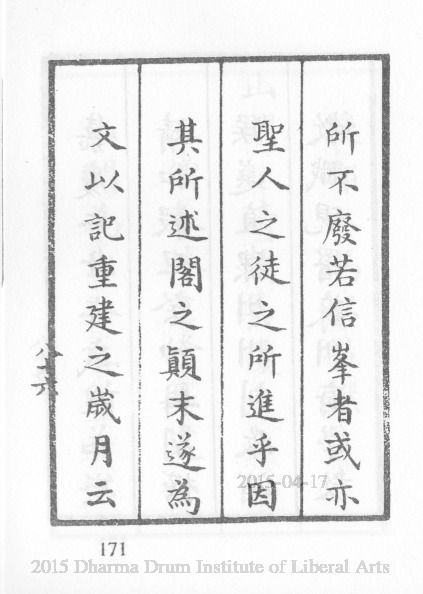 所不廢若信峯者或亦
聖人之徒之所進乎因
其所述閣之顛末遂為
文以記重建之歲月云
八十六
171
2015-04-17
2015 Dharma Drum Institute of Liberal Arts